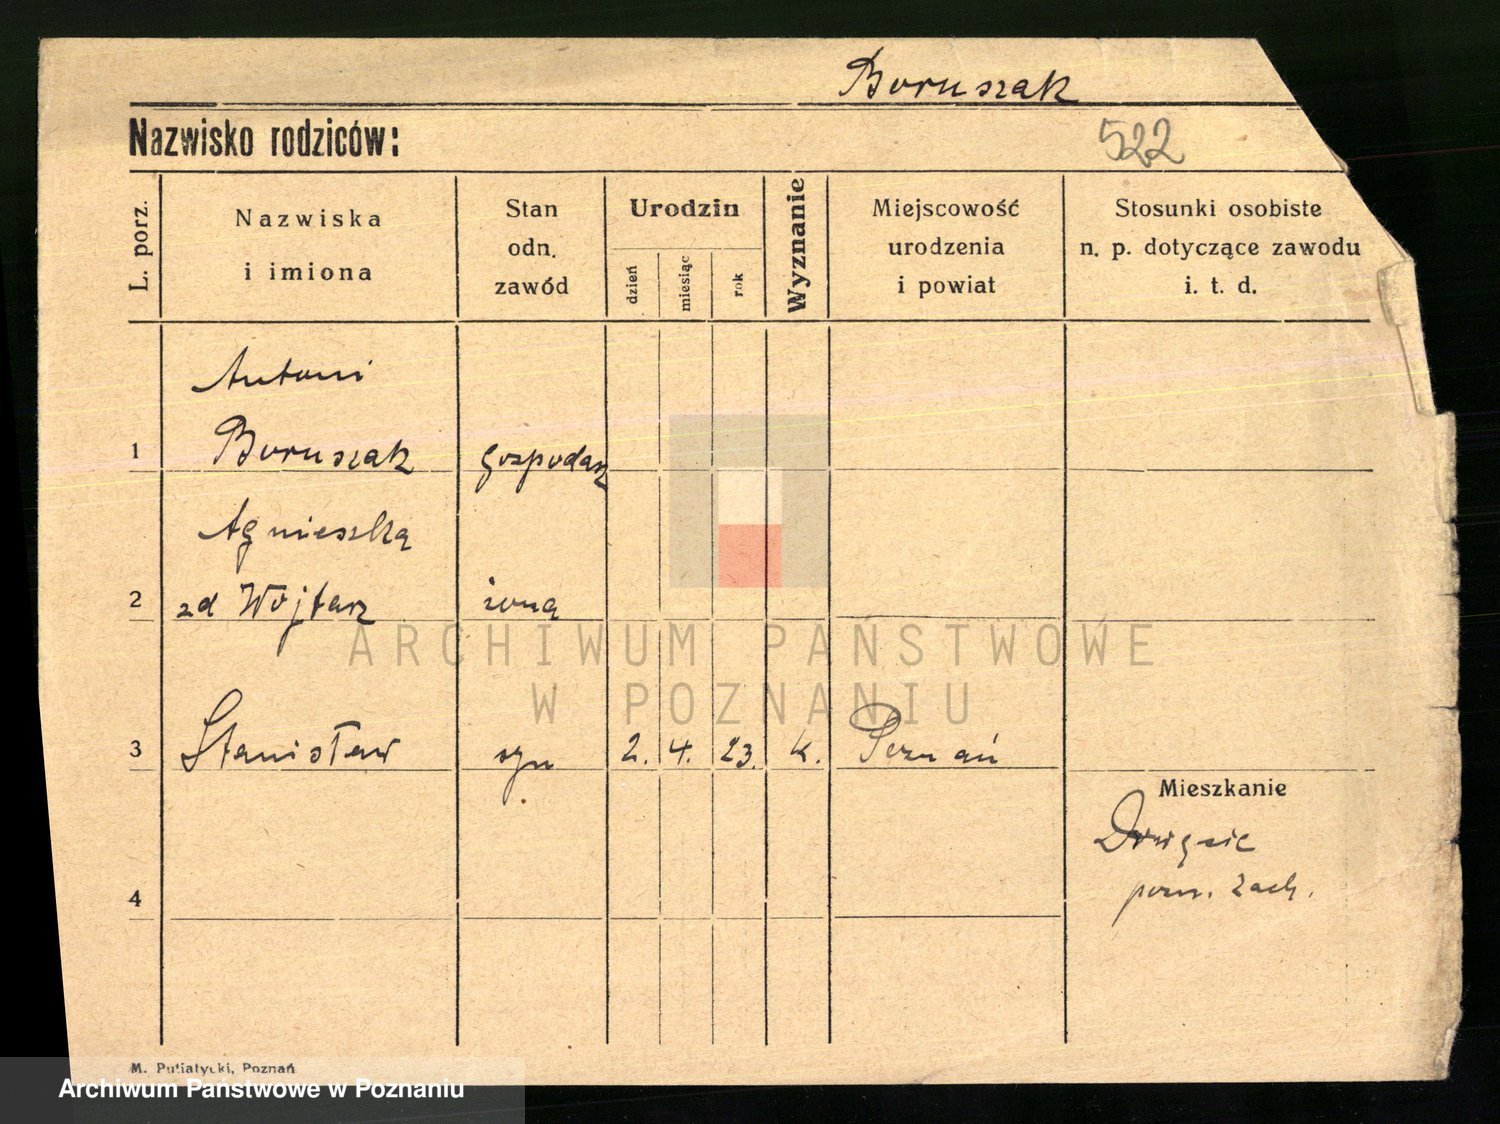 Boruszak
Nazwisko rodziców:
522
L. porz.
Nazwiska
i imiona
Stan
odn.
zawód
Urodzin
dzień
miesiąc
rok
Wyznanie
Miejscowość
urodzenia
i powiat
Stosunki osobiste
n. p. dotyczące zawodu
i. t. d.
Antoni
1 Boruszak gospodarz
Agnieszka
2 zd Wojtasz żona
ARCHIWUM PAŃSTWOWE
W POZNANIU
3 Stanisław syn 2. 4. 23. k. Poznań
Mieszkanie
pozn. Zach.
4
M. Putiatycki, Poznań
Archiwum Państwowe w Poznaniu